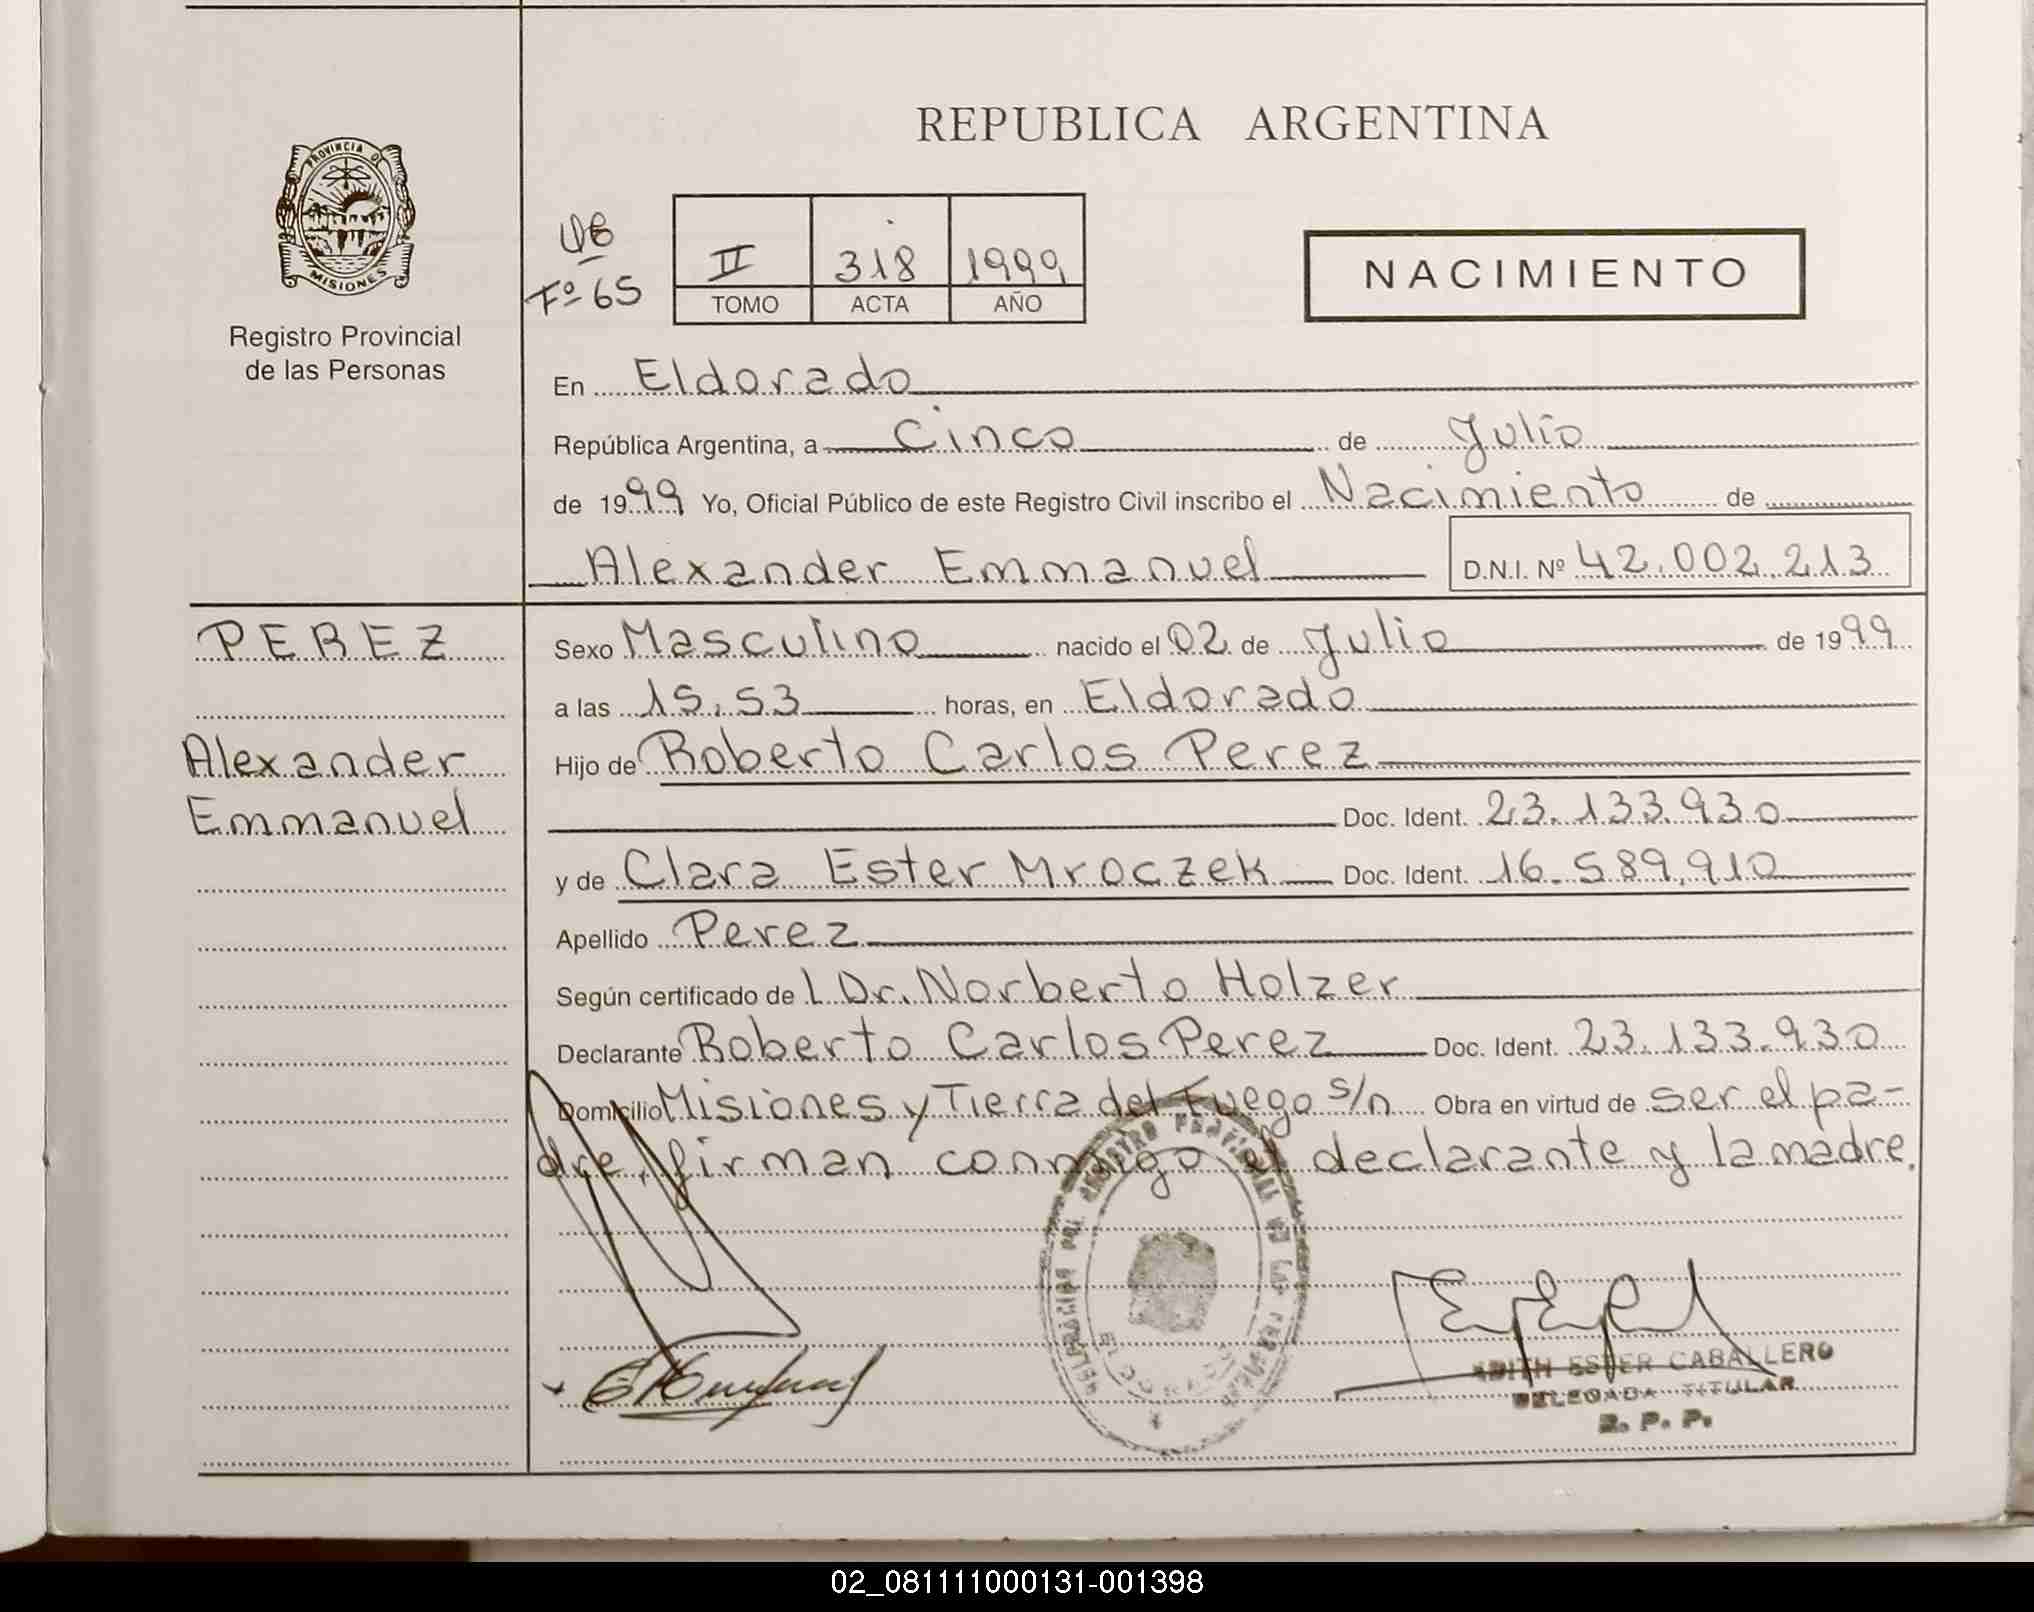 REPUBLICA ARGENTINA
PROVINCIA DE
MISIONES
Registro Provincial
de las Personas
Fº 65
II 318 1999
TOMO ACTA AÑO
NACIMIENTO
En Eldorado
República Argentina, a Cinco de Julio
de 1999 Yo, Oficial Público de este Registro Civil inscribo el Nacimiento de
Alexander Emmanuel D.N.I. Nº 42.002.213
PEREZ
Alexander
Emmanuel
Sexo Masculino nacido el 02 de Julio de 1999
a las 15.53 horas, en Eldorado
Hijo de Roberto Carlos Perez
Doc. Ident. 23.133.930
y de Clara Ester Mroczek Doc. Ident. 16.589.910
Apellido Perez
Según certificado de l Dr. Norberto Holzer
Declarante Roberto Carlos Perez Doc. Ident. 23.133.930
Domicilio Misiones y Tierra del Fuego s/n Obra en virtud de ser el pa-
dre, firman conmigo el declarante y la madre.
REGISTRO PROVINCIAL DE LAS PERSONAS
ELDORADO
EDITH ESTER CABALLERO
DELEGADA TITULAR
R. P. P.
02_081111000131-001398